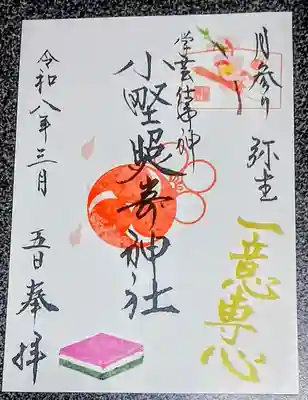 月参り
弥生
一意専心
学芸仕事神
小野照崎神社
令和八年三月
五日
奉拝